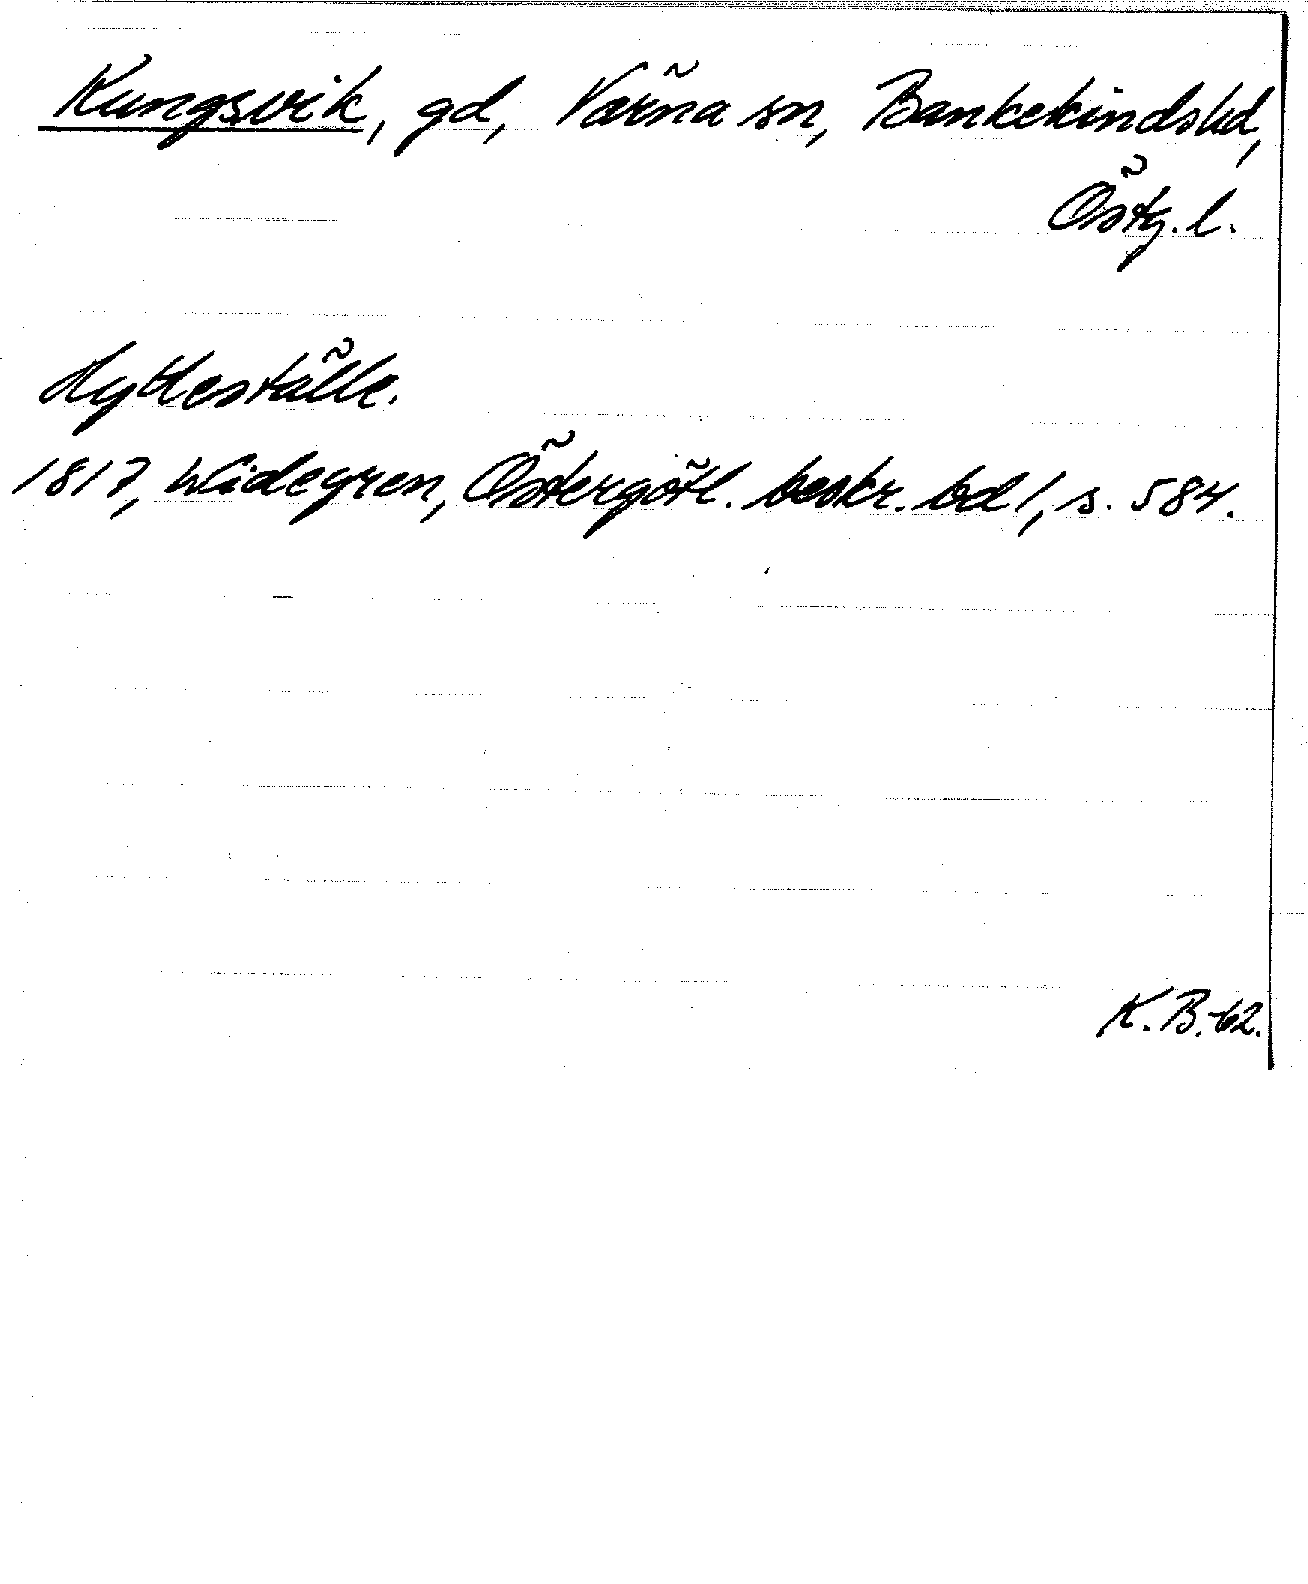 Kungsvik, gd, Värna sn, Bankekinds hd,
Östg. l.
Hytteställe.
1817, Widegren, Östergötl. beskr. bd 1, s. 584.
K. B. -62.